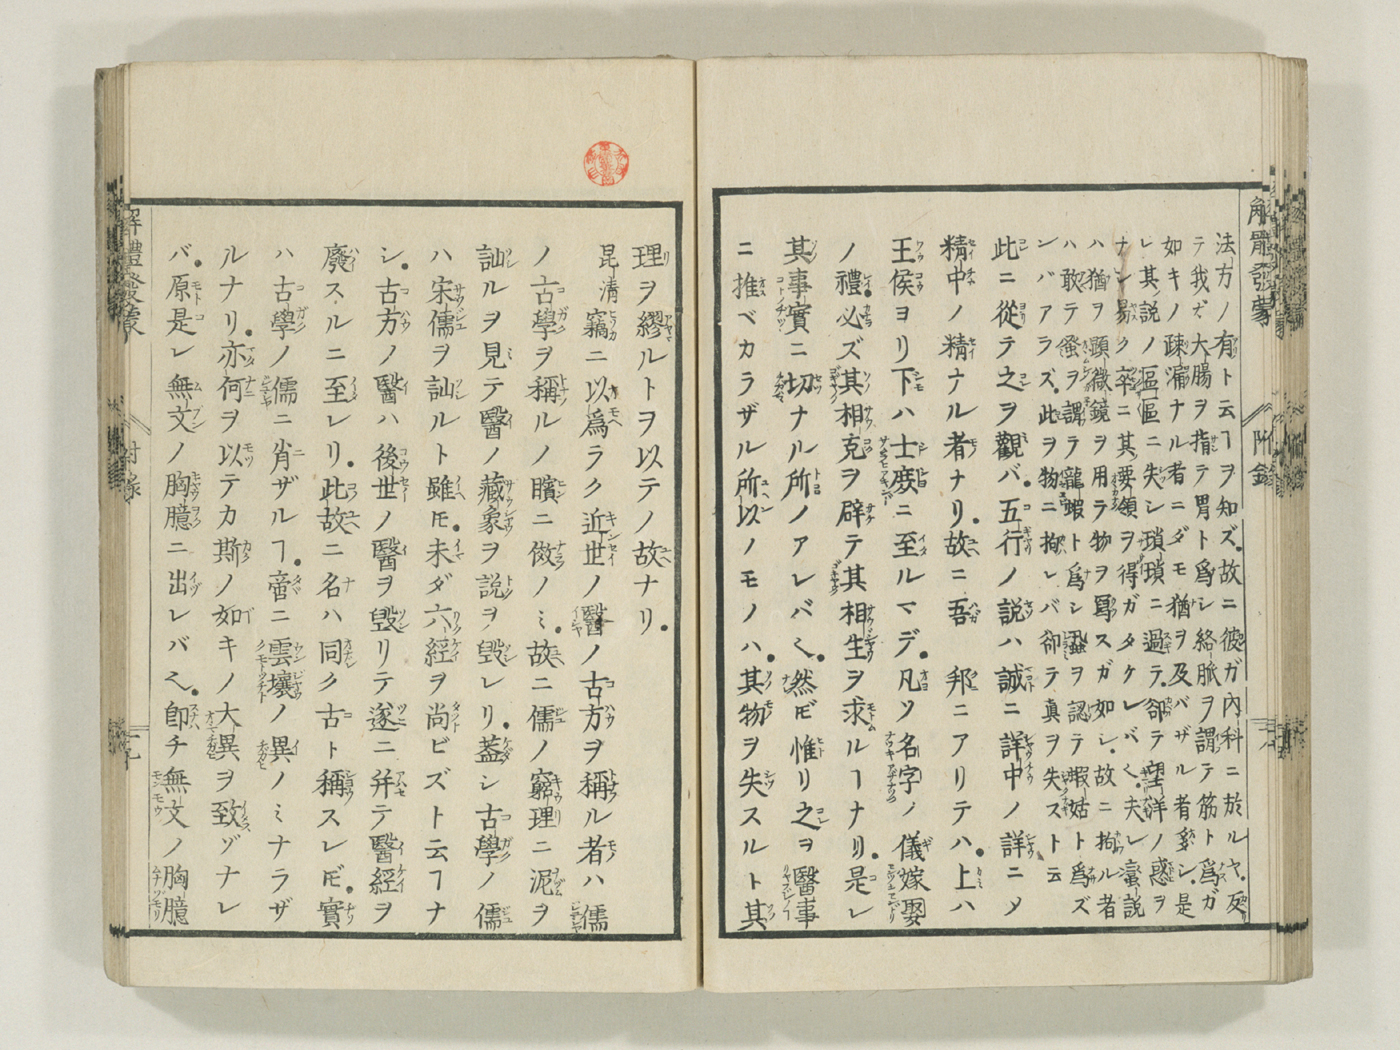 解體發蒙
附録
法方ノ有ト云ヿヲ知ズ。故ニ彼ガ内科ニ於ルヤ。反
テ我ガ大腸ヲ指テ胃ト爲シ絡脈ヲ謂テ筋ト爲ガ
如キノ疎漏ナル者ニダモ猶ヲ及バザル者多シ。是
レ其説ノ區區ニ失シ瑣瑣ニ過テ。卻テ望洋ノ惑ヲ
ナシ易ク卒ニ其要領ヲ得ガタケレバ也。夫レ蛮説
ハ猶ヲ顕微鏡ヲ用テ物ヲ冩スガ如シ。故ニ拘ル者
ハ敢テ蚤ヲ謂テ龍蝦ト爲シ虱ヲ認テ蝦姑ト爲ズ
ンバアラズ。此ヲ物ニ拘レバ卻テ真ヲ失スト云
此ニ從テ之ヲ觀バ。五行ノ説ハ誠ニ詳中ノ詳ニメ
精中ノ精ナル者ナリ。故ニ吾 邦ニアリテハ。上ハ
王侯ヨリ下ハ士庶ニ至ルマデ。凡ソ名字ノ儀嫁娶
ノ禮。必ズ其相克ヲ辟テ其相生ヲ求ルヿナリ。是レ
其事實ニ切ナル所ノアレバ也。然ㇾ𪜈惟リ之ヲ醫事
ニ推ベカラザル所以ノモノハ。其物ヲ失スルト其
理ヲ繆ルトヲ以テノ故ナリ。
昆清竊ニ以爲ラク近世ノ醫ノ古方ヲ稱ル者ハ儒
ノ古學ヲ稱ルノ臏ニ傚ノミ。故ニ儒ノ窮理ニ泥ヲ
訕ルヲ見テ醫ノ藏象ヲ説ヲ毀レリ。蓋シ古學ノ儒
ハ宋儒ヲ訕ルト雖𪜈。未ダ六經ヲ尚ビズト云ヿナ
シ。古方ノ醫ハ後世ノ醫ヲ毀リテ遂ニ并テ醫經ヲ
廢スルニ至レリ。此故ニ名ハ同ク古ト稱スレ𪜈。實
ハ古學ノ儒ニ肖ザルヿ。啻ニ雲壤ノ異ノミナラザ
ルナリ。亦何ヲ以テカ斯ノ如キノ大異ヲ致ヅナレ
バ。原是レ無文ノ胸臆ニ出レバ也。即チ無文ノ胸臆
解體發蒙
附録